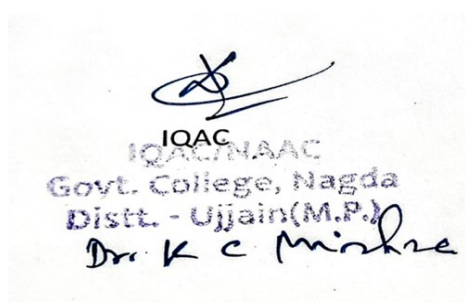 IQAC
IQAC/NAAC
Govt. College, Nagda
Distt. - Ujjain(M.P.)
Dr. K C Mishra